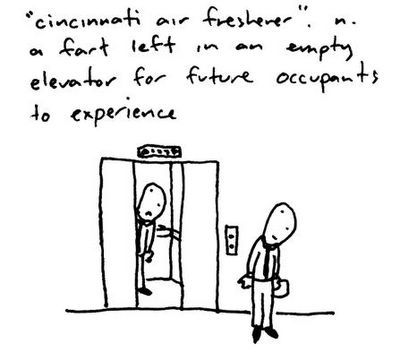 "cincinnati air freshener". n.
a fart left in an empty
elevator for future occupants
to experience